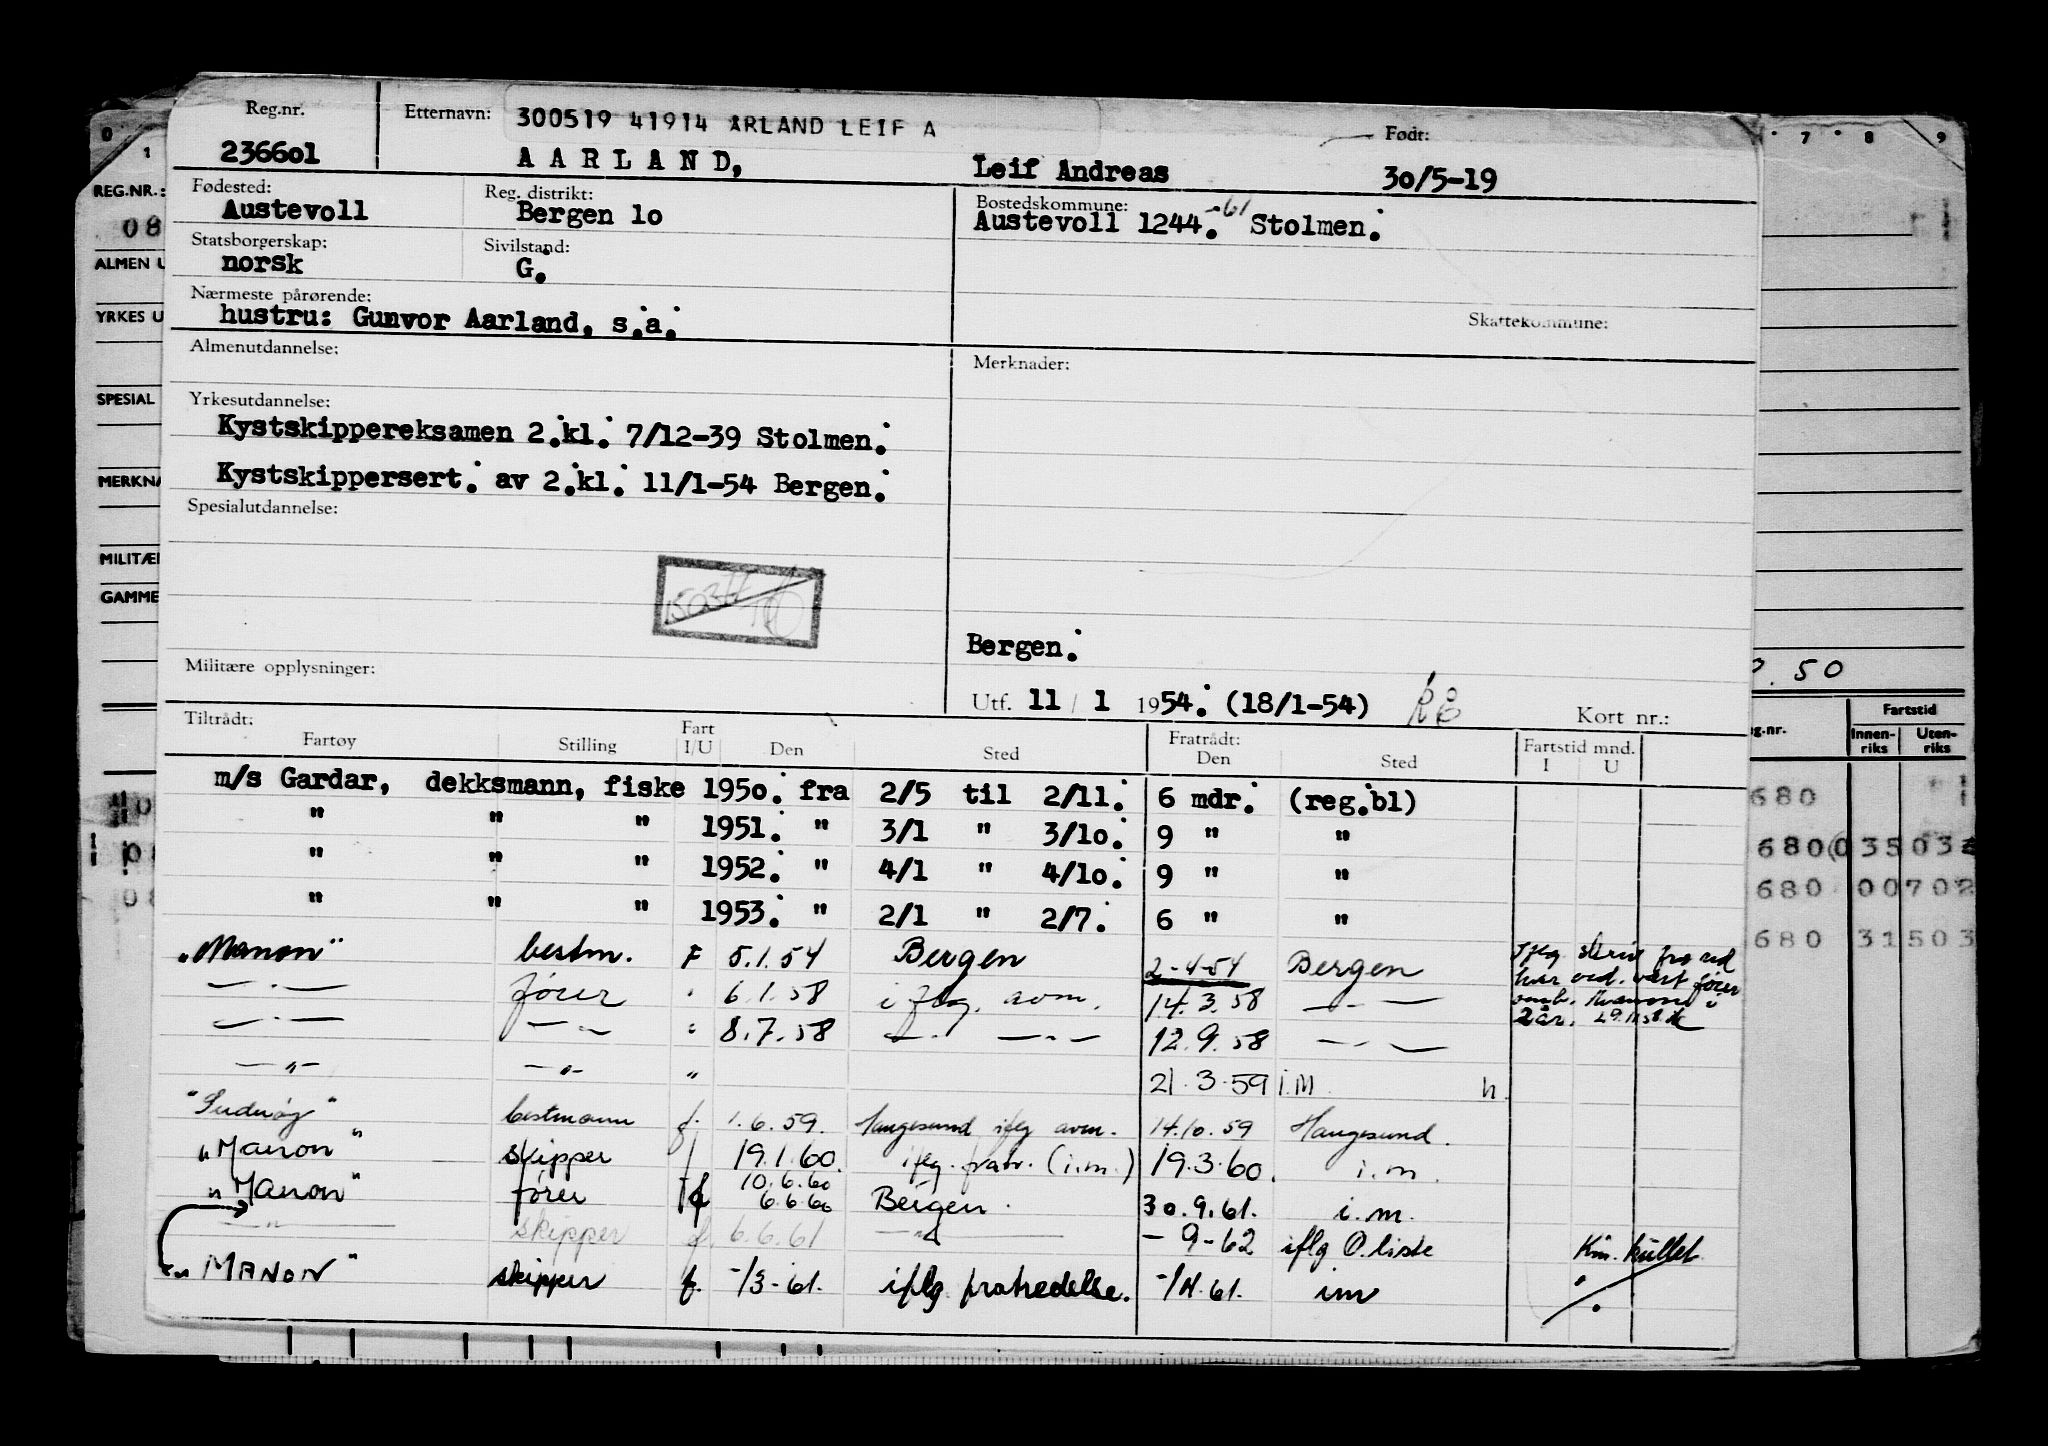 Reg.nr. Etternavn: 300519 41914 ARLAND LEIF A Født:
236601 AARLAND, Leif Andreas 30/5-19
Fødested: Reg. distrikt: Bostedskommune:
Austevoll Bergen 10 Austevoll 1244. -61 Stolmen.
Statsborgerskap: Sivilstand:
norsk G.
Nærmeste pårørende:
hustru: Gunvor Aarland, s.a. Skattekommune:
Almenutdannelse: Merknader:
Yrkesutdannelse:
Kystskippereksamen 2.kl. 7/12-39 Stolmen.
Kystskippersert. av 2.kl. 11/1-54 Bergen.
Spesialutdannelse:
Bergen.
Militære opplysninger:
Utf. 11 / 1 1954. (18/1-54) Kort nr.:
Tiltrådt: Fart Fratrådt: Fartstid mnd.
Fartøy Stilling I/U Den Sted Den Sted I U
m/s Gardar, dekksmann, fiske 1950. fra 2/5 til 2/11. 6 mdr. (reg.bl)
" " " 1951. " 3/1 " 3/10. 9 " "
" " " 1952. " 4/1 " 4/10. 9 " "
" " " 1953. " 2/1 " 2/7. 6 " "
"Manon" bestm. F 5.1.54 Bergen 2-4-54 Bergen
— " — fører " 6.1.58 iflg. avm. 14.3.58 — " —
— " — — " — " 8.7.58 — " — 12.9.58 — " —
— " — — " — " 21.3.59 i.M. h
bestmann f. 1.6.59. Haugesund iflg avm. 14.10.59 Haugesund.
"Manon" skipper f 19.1.60. iflg. fratr. (i.m.) 19.3.60. i.m.
10.6.60
"Manon" fører f 6.6.60 Bergen. 30.9.61. i.m.
— " — skipper f. 6.6.61 — " — - 9-62 iflg O.liste
"MANON" skipper f. -/3-61. iflg fratredelse. -/4.61. im
0 1
REG.NR.:
08
ALMEN U
YRKES U
SPESIAL
MERKNA
MILITÆR
GAMME
7 8 9
.50
g.nr. Fartstid
Innen-riks Uten-riks
680
680 035 03
680 00702
680 31503